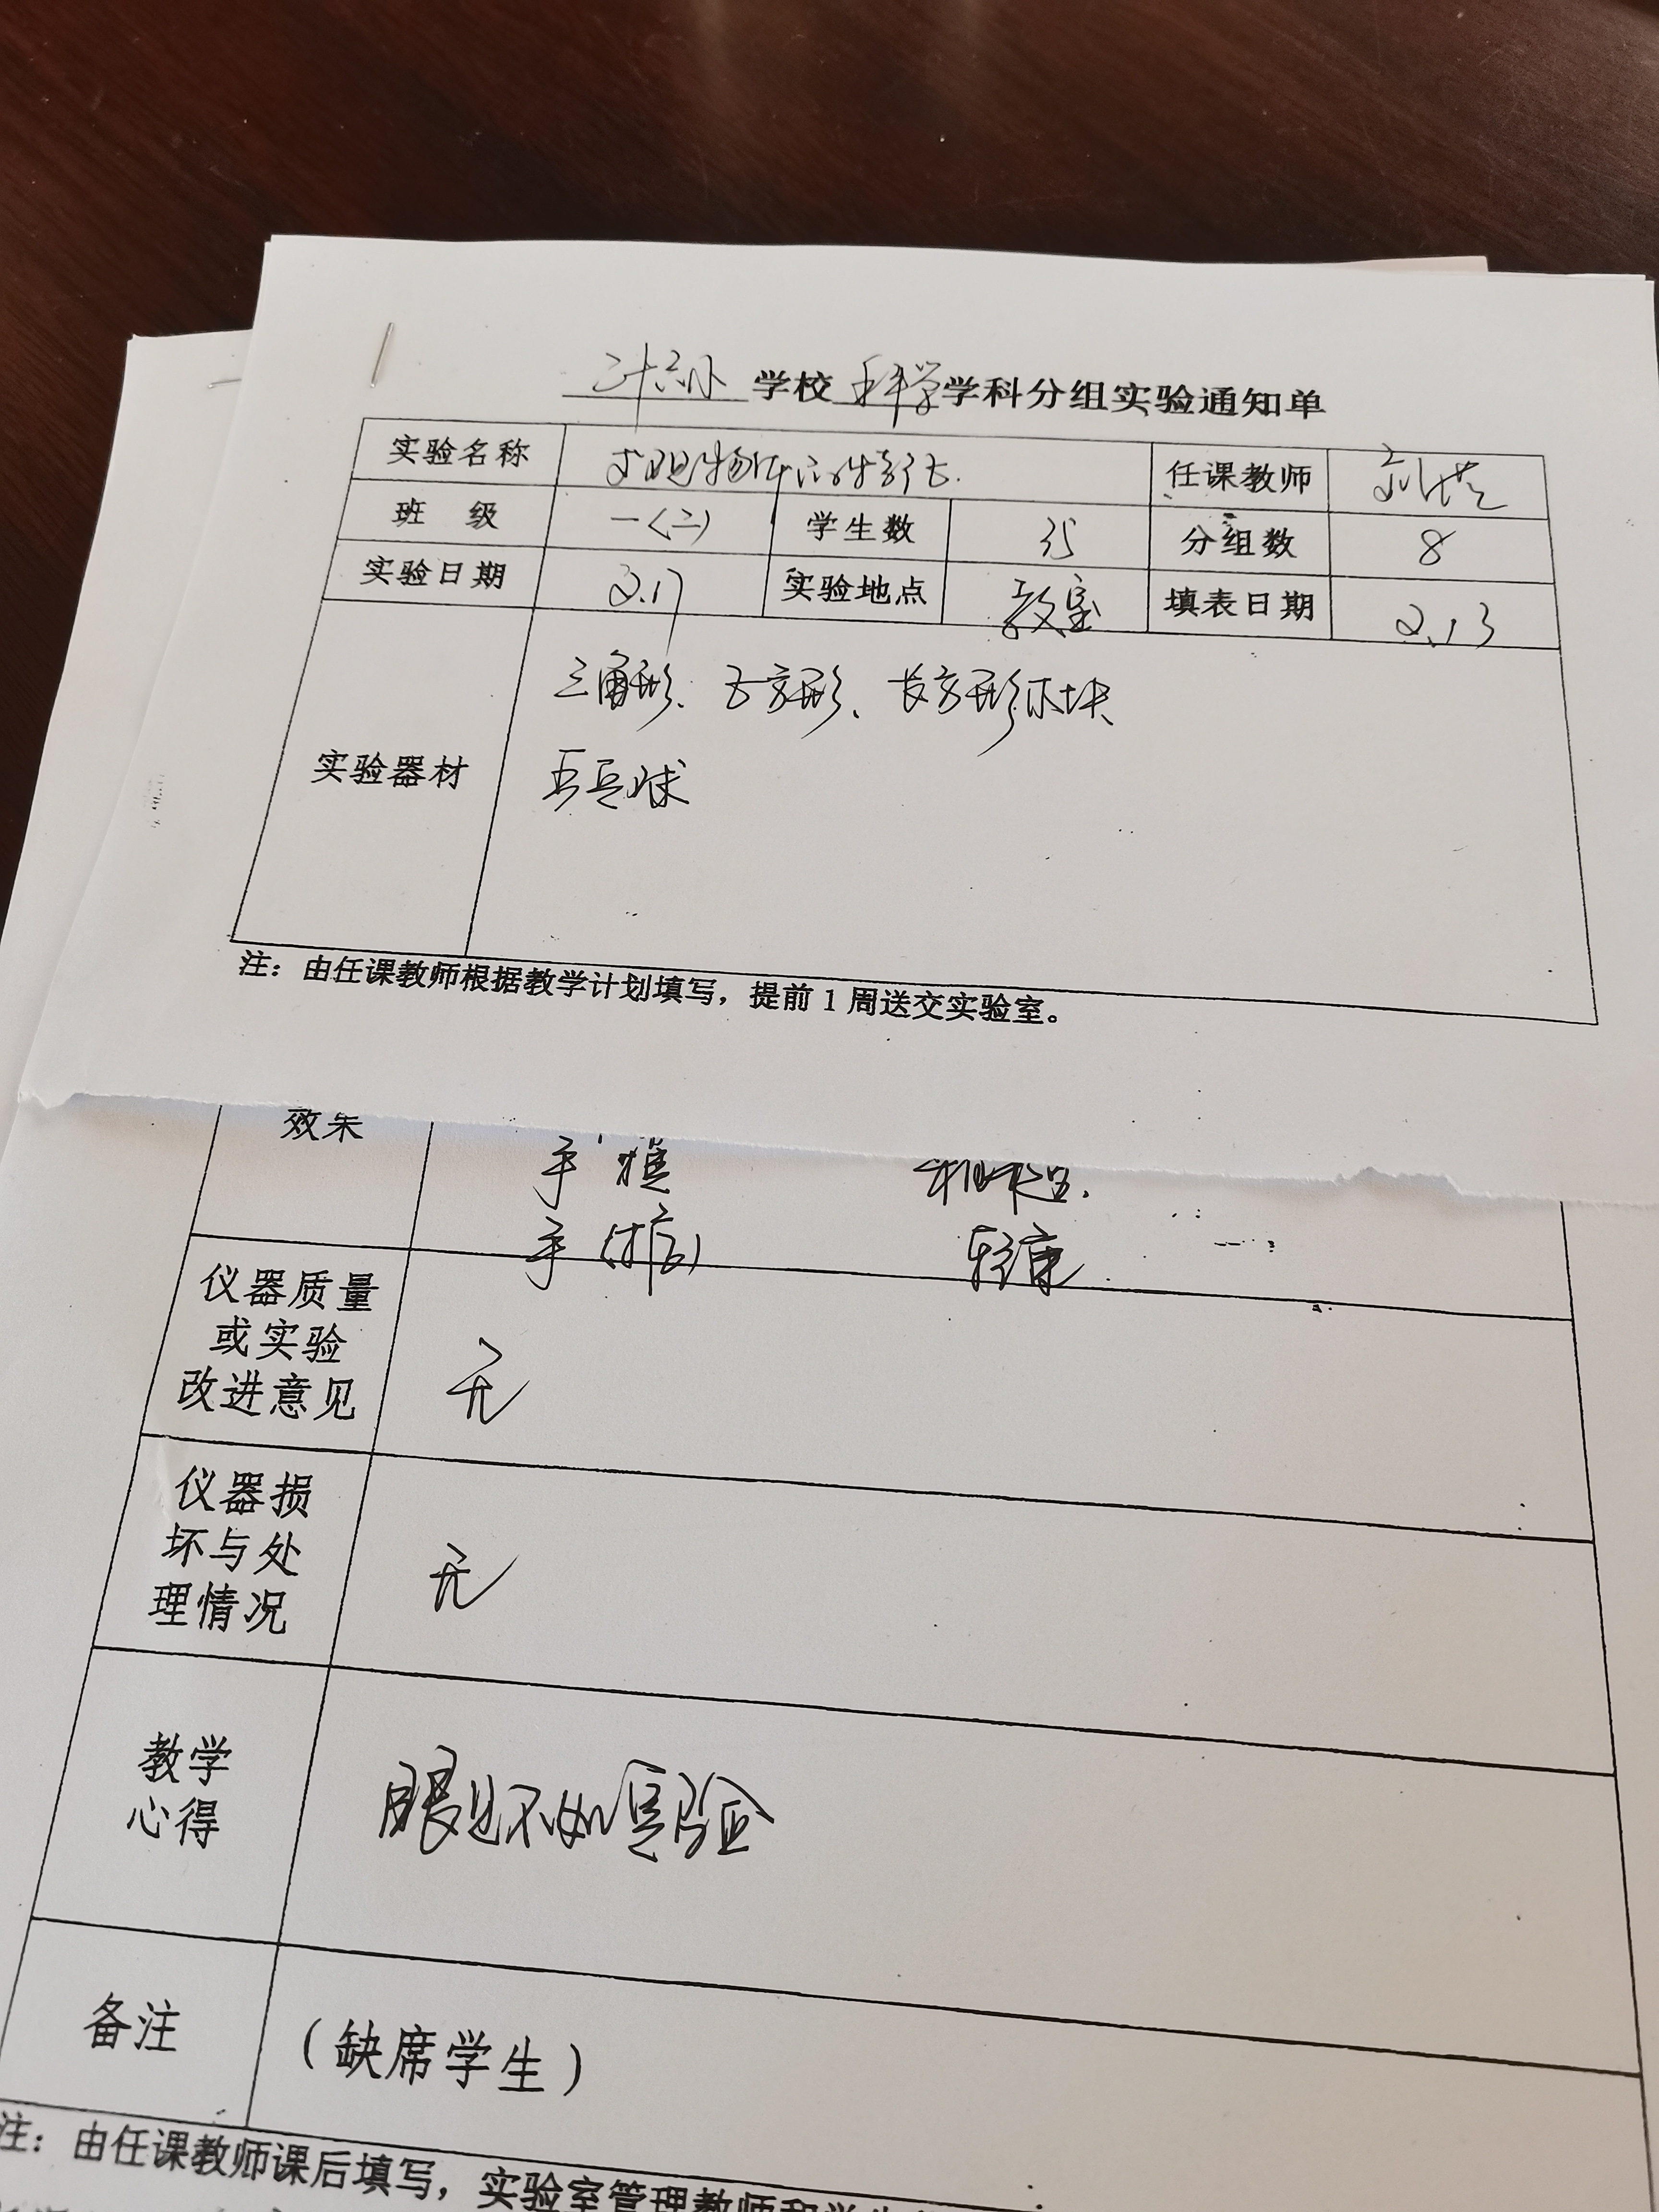 三十六小学校科学学科分组实验通知单
实验名称 发现物体的特征 任课教师
班 级 一(二) 学生数 35 分组数 8
实验日期 2.17 实验地点 教室 填表日期 2.13
实验器材 三角形、正方形、长方形木块
乒乓球
注：由任课教师根据教学计划填写，提前1周送交实验室。
效果
手 摸 粗糙
手
仪器质量
或实验
改进意见
无
仪器损
坏与处
理情况
无
教学
心得
眼过不如实验
备注 （缺席学生）
注：由任课教师课后填写，实验室管理教师和学生